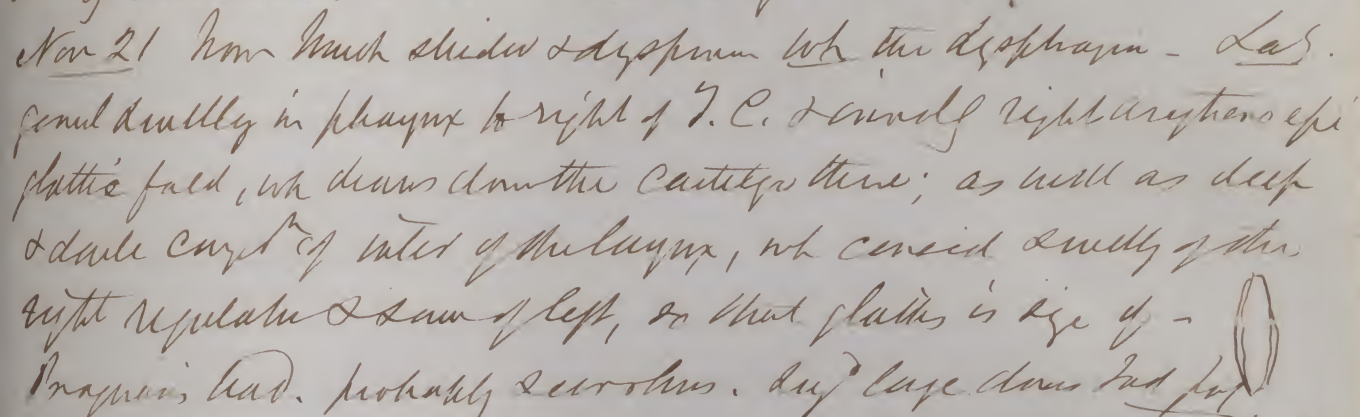 Nov 21 Now much stridor & dyspnoea wh the dysphagia - Las.
genl swellg in pharynx to right of T. C. & involvg right arytheno epi
glottic fold, wh draws down the cartilge there; as well as deep
& dark congn of inter of the larynx, wh consid swellg of the
right regulator & some of left, so that glottis is size of -
Prognosis bad. probably scirrhus. Sugd large doses Iod pot